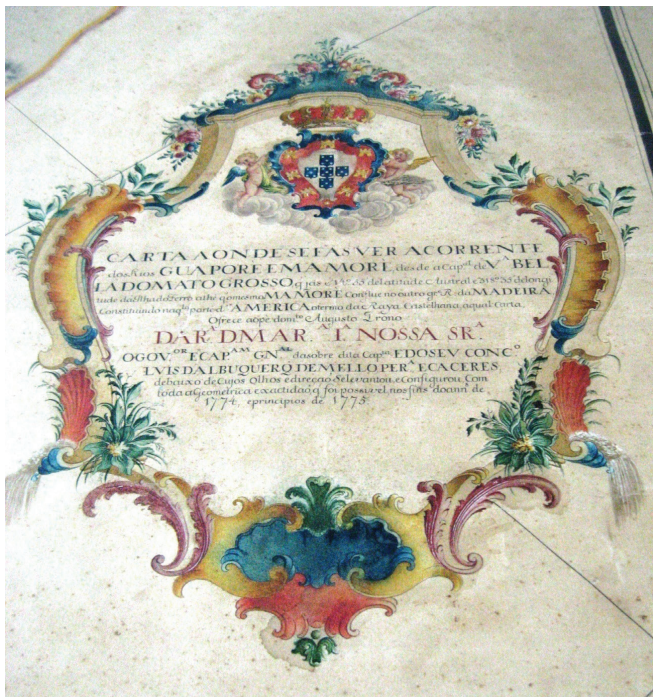 CARTA AONDE SE FAS VER A CORRENTE
dos Rios GUAPORE E MAMORE, desde a Cap.al de V.a BEL
LA DO MATO GROSSO q jás de latitude Austral e de longi
tude da Ilha do Ferro athé q o mesmo MAMORE Conflue no outro gr.e R. da MADEIRA
Constituindo naq.la parte d' AMERICA o termo da Raya Castelhana, a qual Carta
Ofrece ao pé do m.to Augusto Trono
DA R. D MAR.A NOSSA SR.A
O GOV.OR E CAP.AM GN.AL da sobre dita Cap.nia E DO SEU CONC.O
LUIS D ALBUQUERQ DE MELLO PER.A E CACERES
debaixo de Cujos Olhos e direcçaõ Se levantou, e Configurou Com
toda a Geometrica exactidaõ q foi possivel nos fins do ann de
1774, e principios de 1775